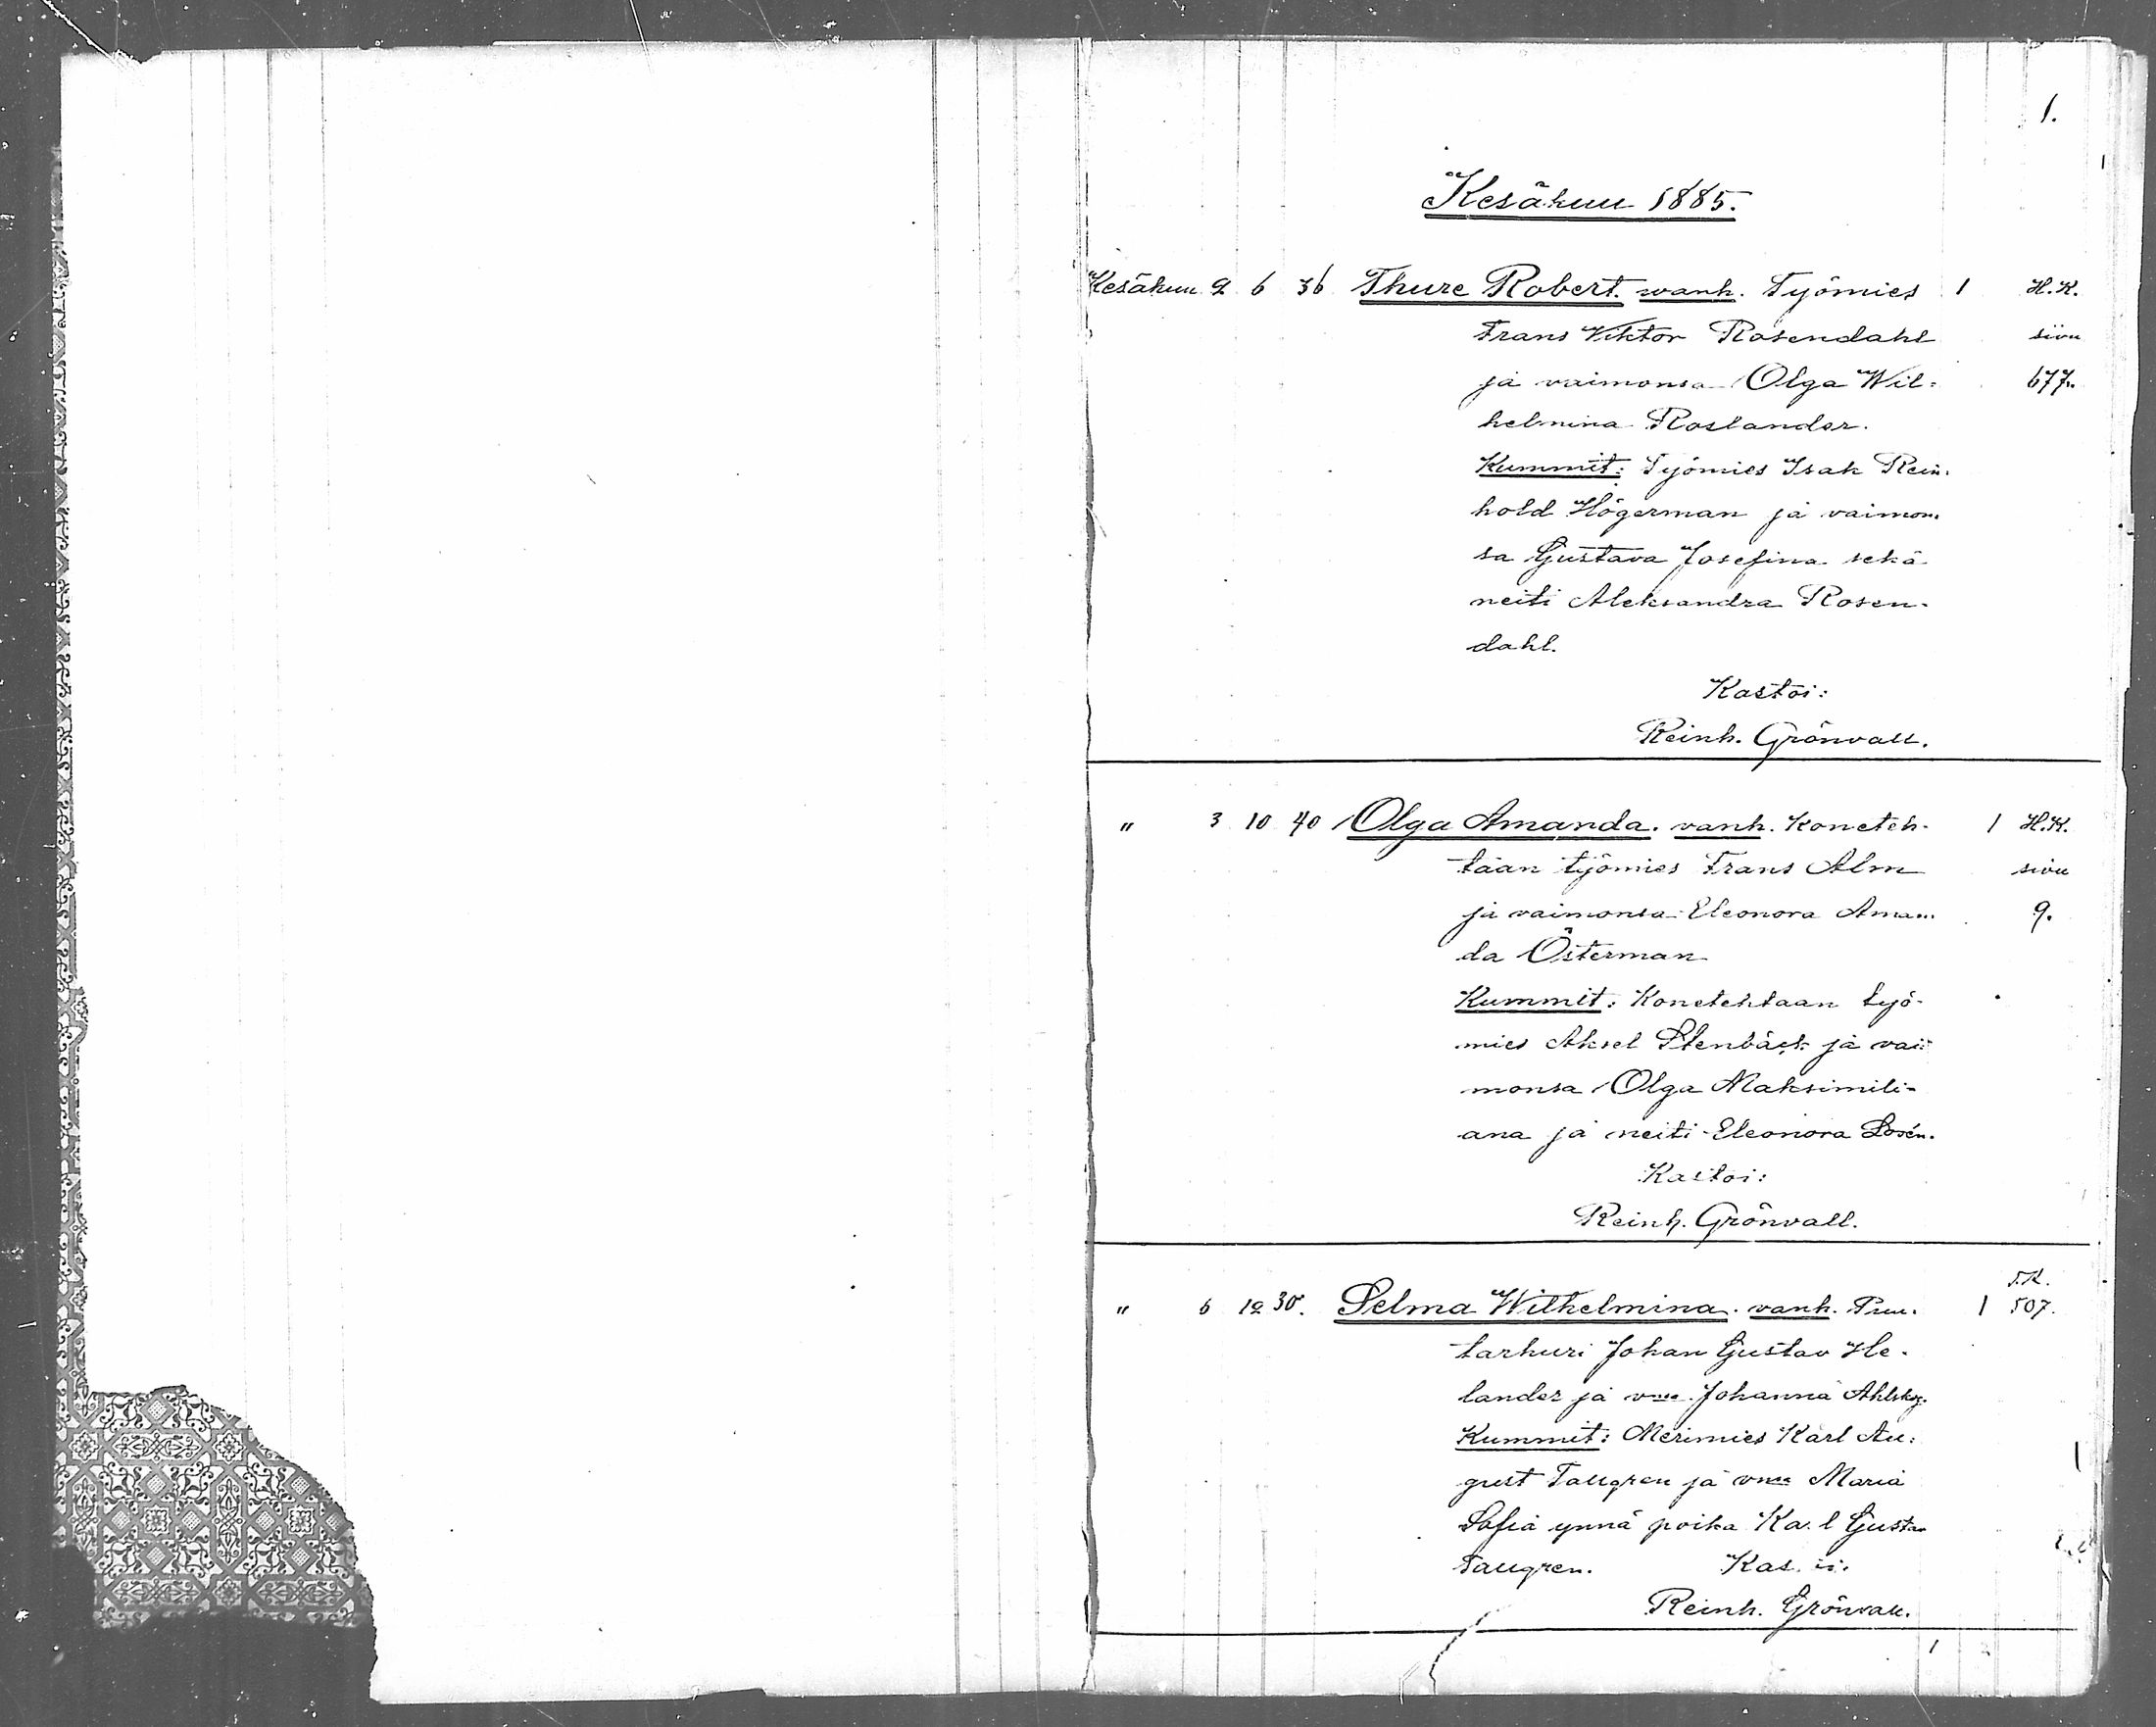 1.
Kesäkuu 1885.
Kesäkuu 2 6 36 Thure Robert. wanh. Työmies 1 H.K.
Frans Viktor Rosendahl sivu
ja vaimonsa Olga Wil- 677.
helmina Roslander.
Kummit: Työmies Isak Rein-
hold Högerman ja vaimon-
sa Gustava Josefina sekä
neiti Aleksandra Rosen-
dahl.
Kastoi:
Reinh. Grönvall.
" 3 10 40 Olga Amanda. vanh. Koneteh- 1 H.K.
taan työmies Frans Alm sivu
ja vaimonsa Eleonora Aman- 9.
da Österman
Kummit: Konetehtaan työ-
mies Aksel Stenbäck ja vai-
monsa Olga Maksimili-
ana ja neiti Eleonora Losén.
Kastoi:
Reinh. Grönvall.
S.K.
" 6 12 30. Selma Wilhelmina. vanh. Puu- 1 507.
tarhuri Johan Gustav He-
lander ja vmo Johanna Ahlskog.
Kummit: Merimies Karl Au-
gust Tallgren ja vmo Maria
Sofia ynnä poika Karl Gustav
Tallgren. Kastoi:
Reinh. Grönvall.